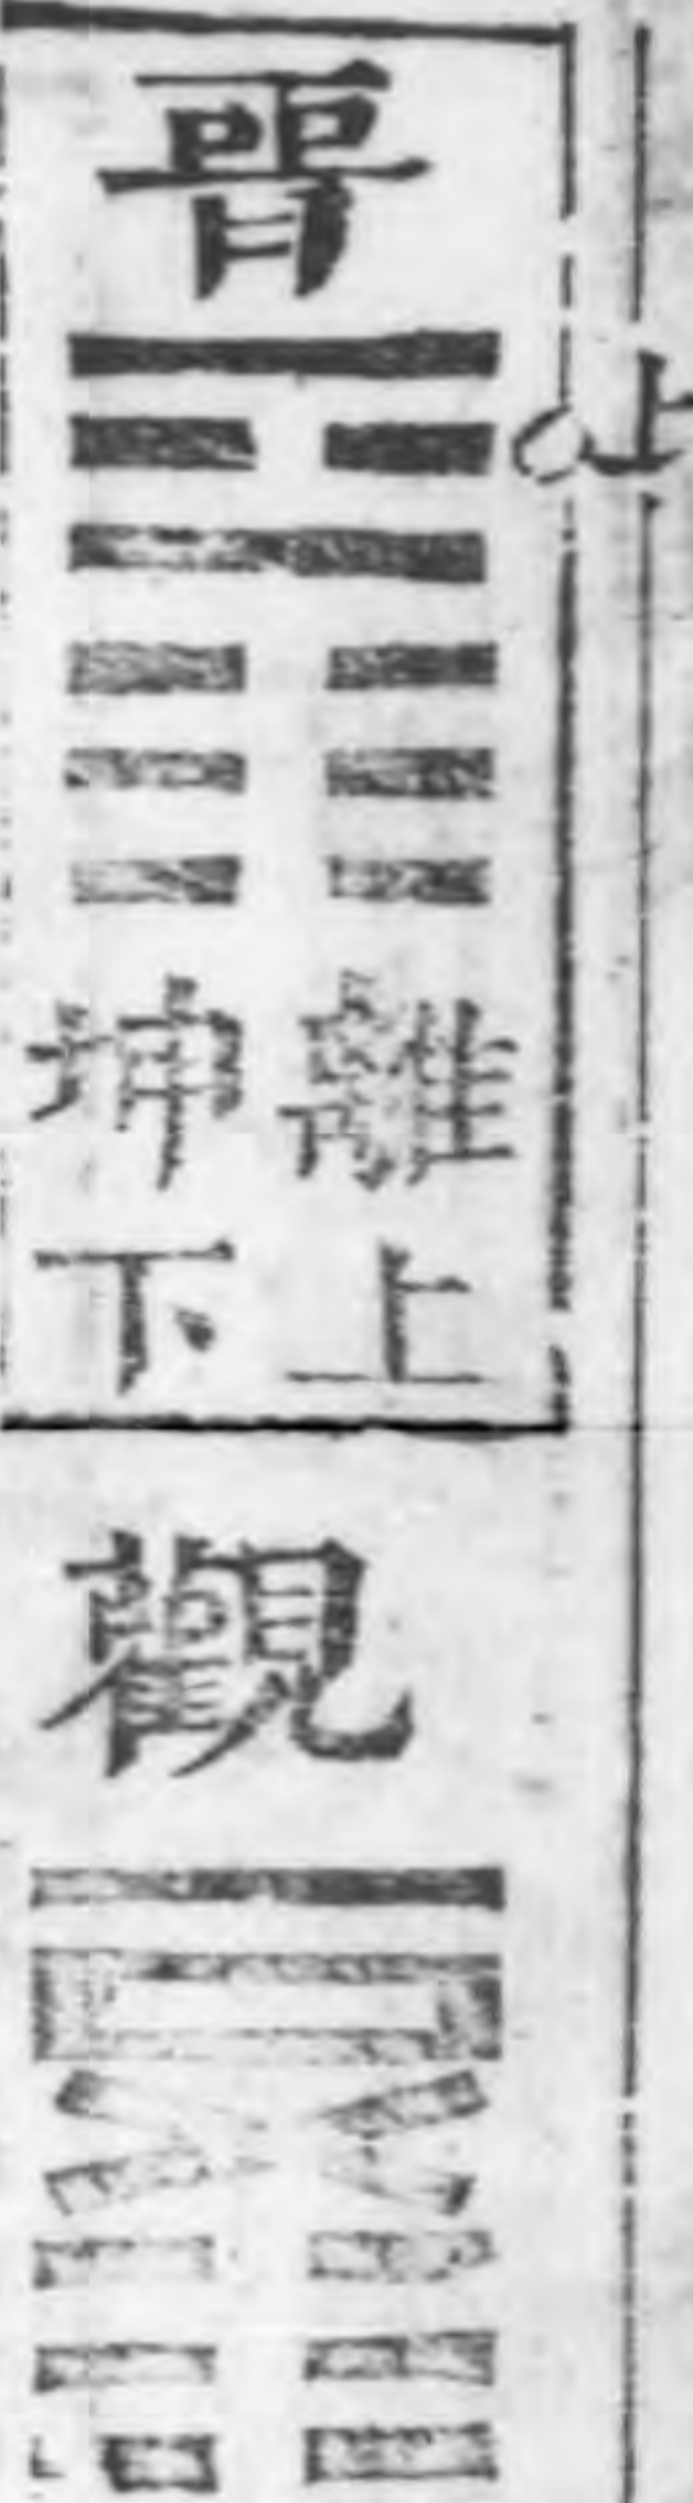 晉
離上
坤下
觀